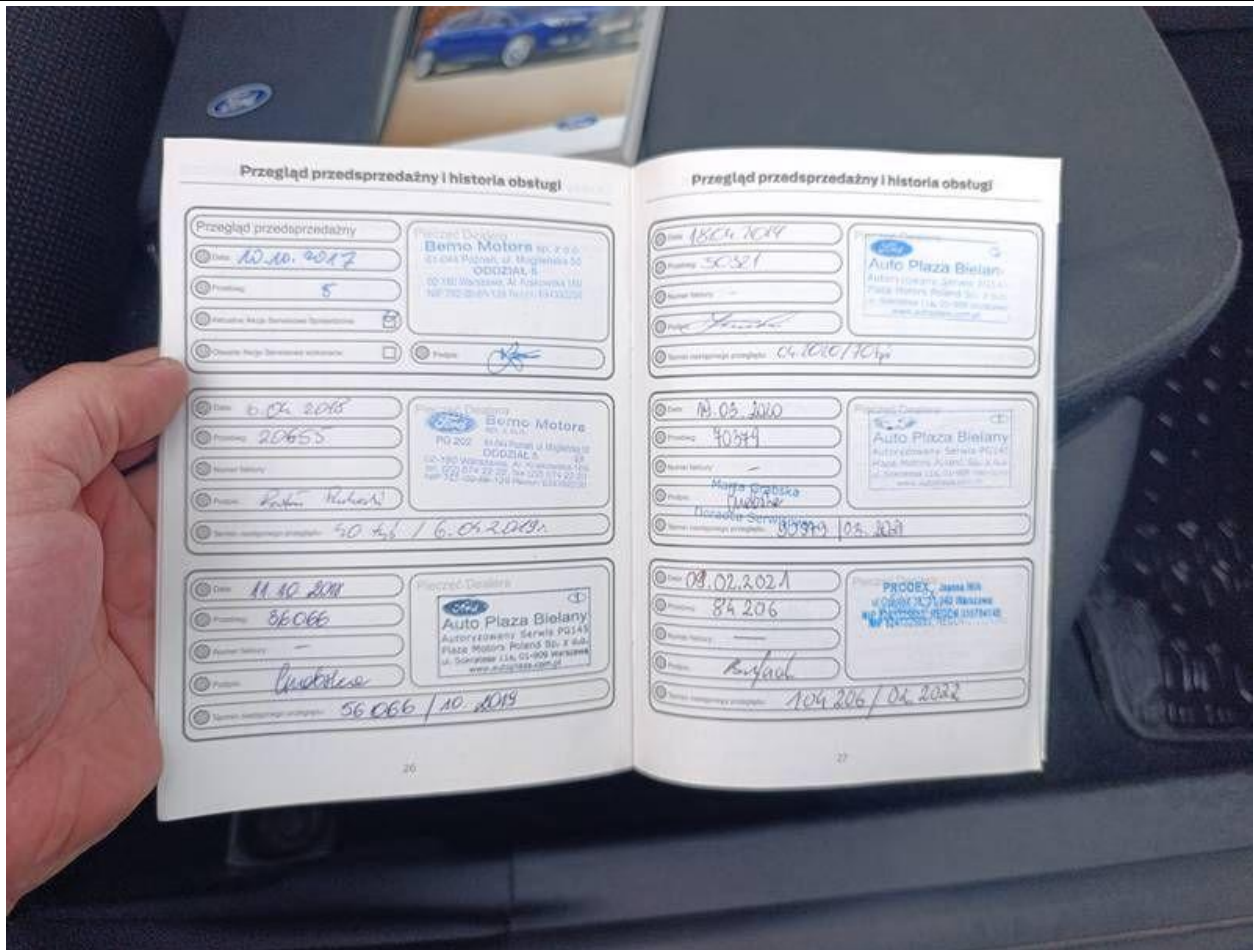 Ford
Przegląd przedsprzedażny i historia obsługi
Przegląd przedsprzedażny
Data 10.10.2017
Przebieg 8
Aktualne Akcje Serwisowe Sprawdzone
Otwarte Akcje Serwisowe wykonane
Pieczęć Dealera
Bemo Motors sp. z o.o.
61-044 Poznań, ul.
ODDZIAŁ 5
02-180 Warszawa, Al. Krakowska
Podpis
Data 6.04.2018
Przebieg 20655
Numer faktury
Podpis
Termin następnego przeglądu 40 tyś / 6.04.2019r.
Pieczęć Dealera
Ford Bemo Motors
sp. z o.o.
PG 202
ODDZIAŁ 5
02-180 Warszawa, Al. Krakowska
Data 11.10.2018
Przebieg 36066
Numer faktury —
Podpis
Termin następnego przeglądu 56066 / 10.2019
Pieczęć Dealera
Ford
Auto Plaza Bielany
Autoryzowany Serwis PG145
Plaza Motors Poland Sp. z o.o.
ul. Sokratesa 11a, 01-909 Warszawa
www.autoplaza.com.pl
26
Przegląd przedsprzedażny i historia obsługi
Data 18.04.2019
Przebieg 50321
Numer faktury —
Podpis
Termin następnego przeglądu 04.2020/70tyś
Pieczęć Dealera
Ford
Auto Plaza Bielan
Autoryzowany Serwis PG145
Plaza Motors Poland Sp. z o.o.
ul. Sokratesa 11a, 01-909 Warszawa
www.autoplaza.com.pl
Data 19.03.2020
Przebieg 70379
Numer faktury —
Podpis
Marta Grabska
Doradca Serwisowy
Termin następnego przeglądu 90379 / 03.2021
Pieczęć Dealera
Auto Plaza Bielany
Autoryzowany Serwis PG145
Plaza Motors Poland Sp. z o.o.
ul. Sokratesa 11a, 01-909 Warszawa
www.autoplaza.com.pl
Data 09.02.2021
Przebieg 84206
Numer faktury —
Podpis
Termin następnego przeglądu 104 206 / 02.2022
Pieczęć Dealera
PRODEX, Joanna
Warszawa
NIP REGON
27